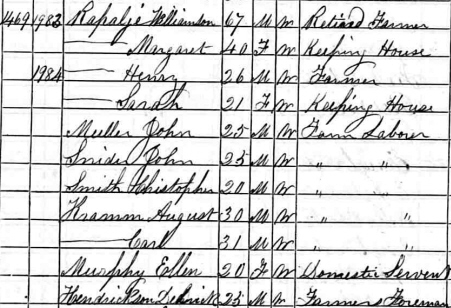 1469 1983 Rapalje Williamson 67 M W Retired Farmer
—— Margaret 40 F W Keeping House
1984 —— Henry 26 M W Farmer
—— Sarah 21 F W Keeping House
Muller John 25 M W Farm Laborer
Snider John 25 M W " "
Smith Christopher 20 M W " "
Kramm August 30 M W " "
—— Carl 31 M W " "
Murphy Ellen 20 F W Domestic Servent
Hendrickson 25 M W Farmers Foreman